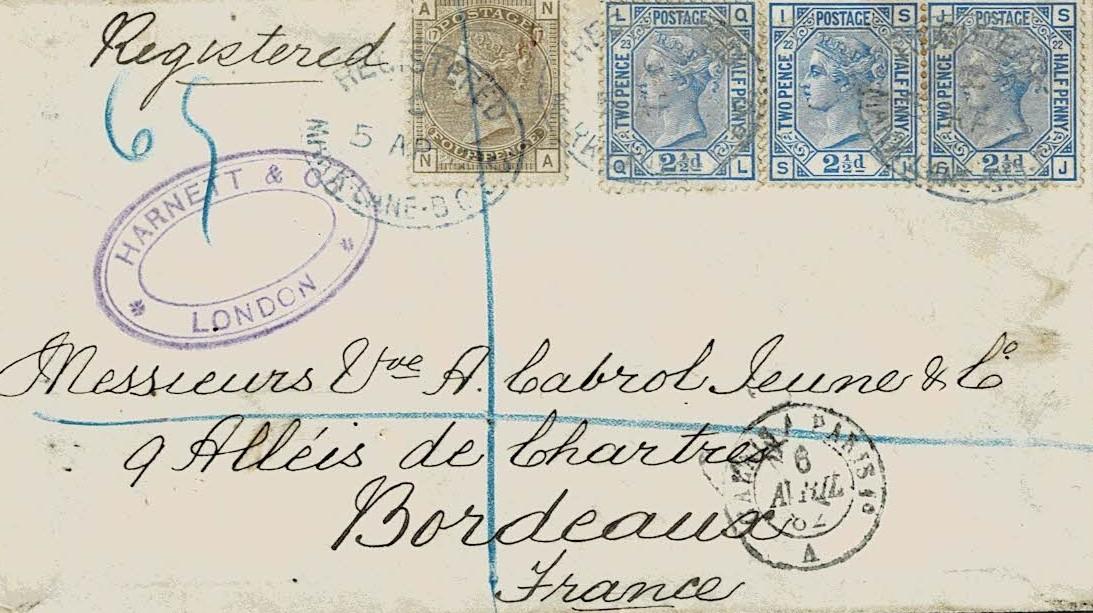 Registered
65
A N
POSTAGE
17
FOUR PENCE
N A
L Q
POSTAGE
23
TWO PENCE
HALF PENNY
2½d
Q L
I S
POSTAGE
22
TWO PENCE
HALF PENNY
2½d
S
J S
POSTAGE
22
HALF PENNY
2½d
J
REGISTERED
5 AP
MINCING LANE-B.O.
HARNETT & CO
* LONDON *
Messieurs Vve A. Cabrol Jeune & Co
9 Alléis de Chartres
Bordeaux
France
CALAIS A PARIS
6
AVRIL
82
A